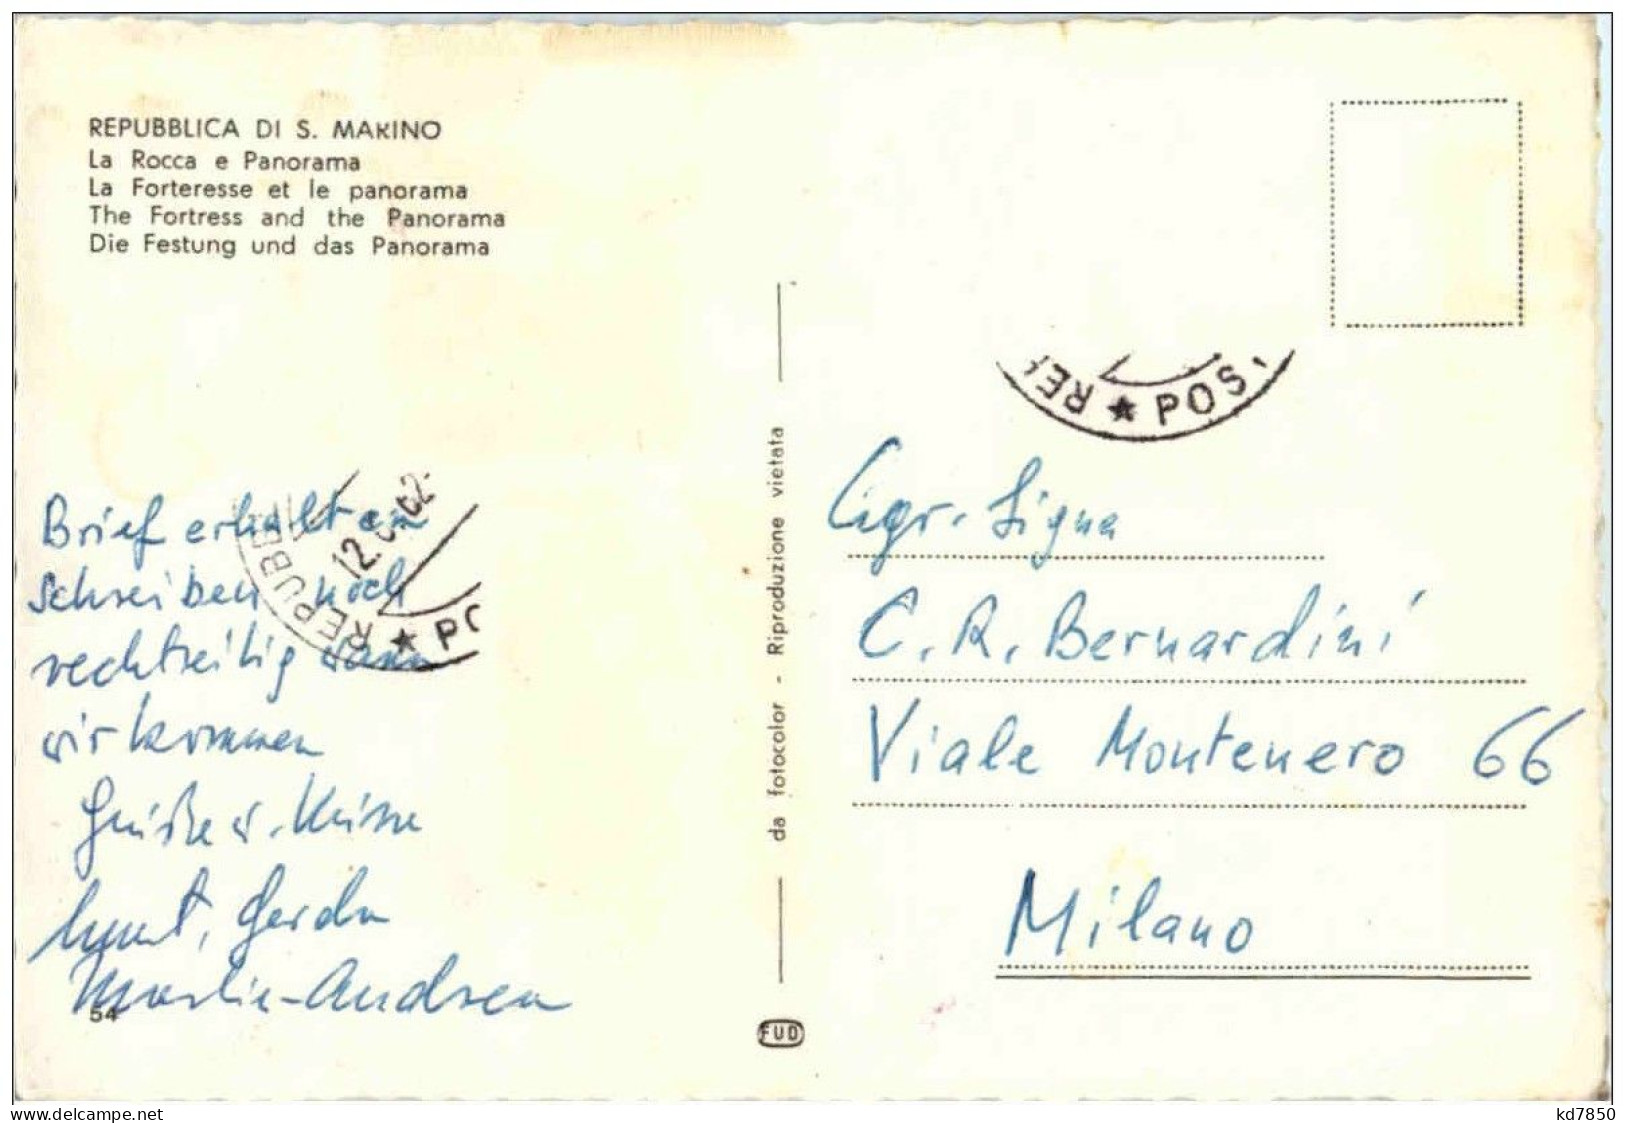 REPUBBLICA DI S. MARINO
La Rocca e Panorama
La Forteresse et le panorama
The Fortress and the Panorama
Die Festung und das Panorama
Brief erhalten
schreiben noch
rechtzeitig wann
wir kommen
Grüße u. Küsse
Gerda
Martin-Andrea
54
REPUBB
12. 62.
REP ★ PO
da fotocolor - Riproduzione vietata
FUD
REP ★ POS
Egr. Signa
C. R. Bernardini
Viale Montenero 66
Milano
www.delcampe.net
kd7850